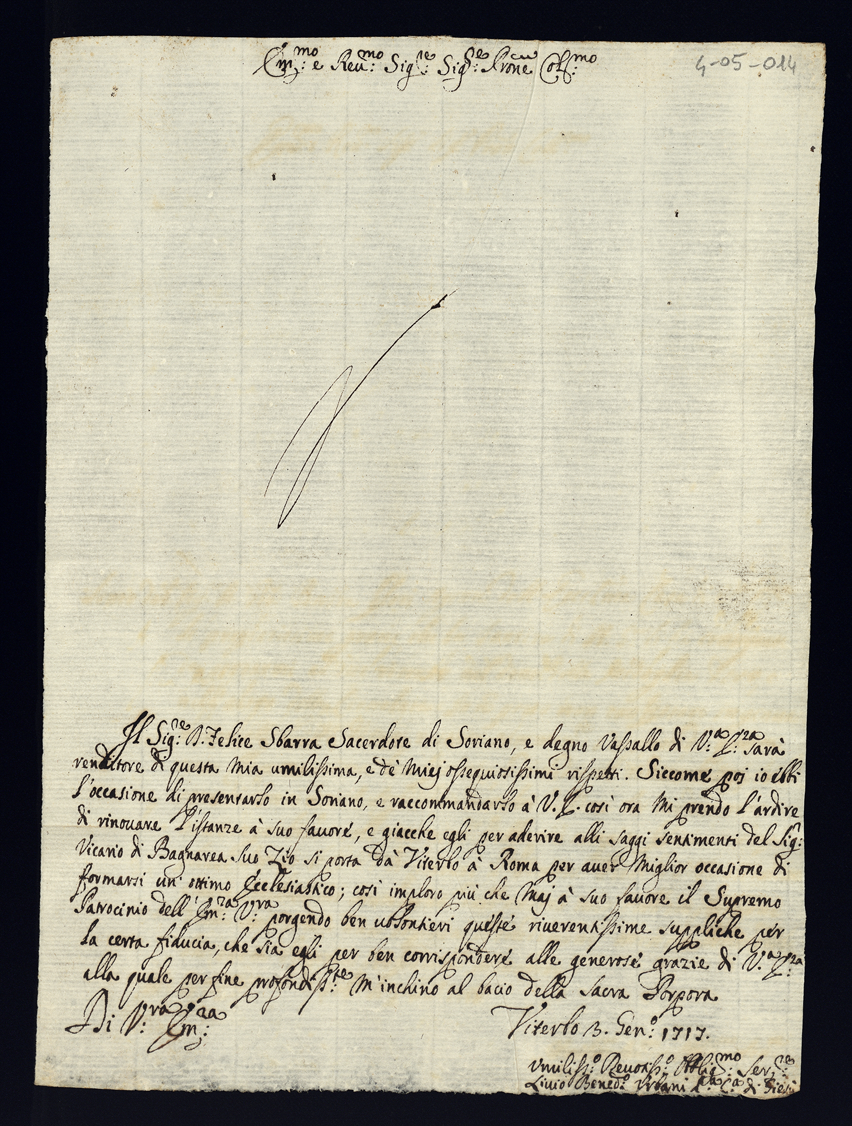 Em.mo e Reu.mo Sig.re Sig.re Prone Col.mo
4-05-014
Il Sig.re D. Felice Sbarra Sacerdote di Soriano, e degno Vassallo di V.a E.za sarà
renditore di questa mia umilissima, e de' miej ossequiosissimi rispetti. Siccome poj io ebbi
l'occasione di presentarlo in Soriano, e raccommandarlo à V. E. così ora mi prendo l'ardire
di rinouare l'istanze à suo fauore, e giacche egli per aderire alli saggi sentimenti del Sig.r
Vicario di Bagnarea suo Zio si porta dà Viterbo à Roma per auer miglior occasione di
formarsi un'ottimo Ecclesiastico; così imploro più che maj à suo fauore il Supremo
Patrocinio dell'Em.za V.ra porgendo ben uolontieri queste riuerentissime suppliche per
la certa fiducia, che sia egli per ben corrispondere alle generose grazie di V.a E.za
alla quale per fine profondiss.te m'inchino al bacio della Sacra Porpora
Di V.ra Em.za
Viterbo 3. Gen.o 1717.
Umiliss.o Deuotiss.o Obligat.mo Ser.re
Liuio Bened.o Urbani di